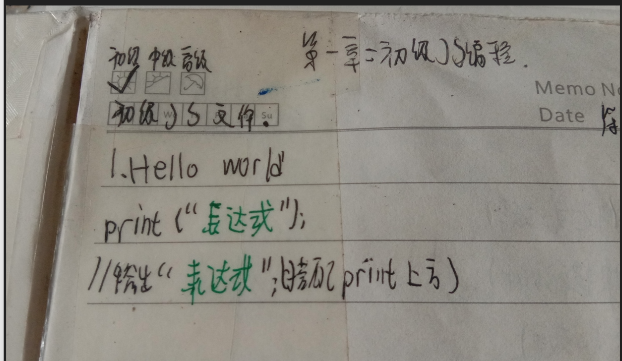 第一章:初级JS编程.
初级 中级 高级
Memo No
Date 第
初级JS文件:
1.Hello world
print("表达式");
//输出“表达式”;(印print上方)